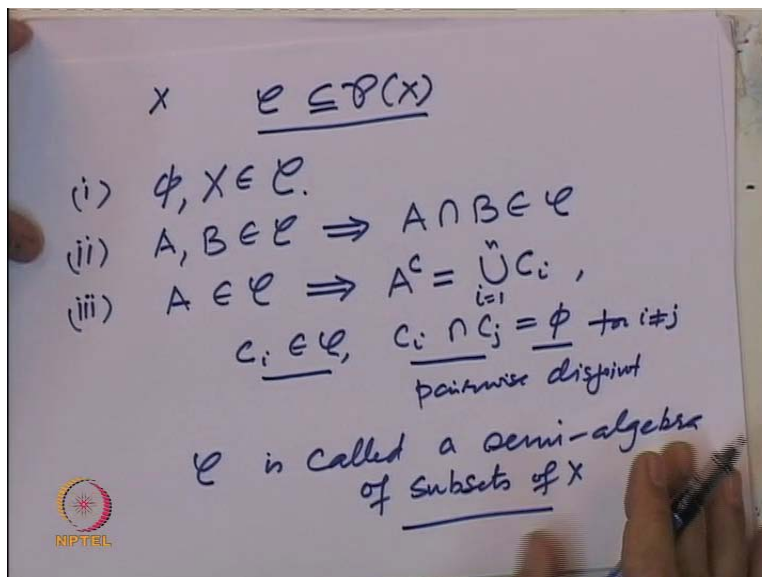 X    𝒞 ⊆ 𝒫(X)
(i) ϕ, X ∈ 𝒞.
(ii) A, B ∈ 𝒞 ⟹ A ∩ B ∈ 𝒞
(iii) A ∈ 𝒞 ⟹ Aᶜ = ⋃ᵢ₌₁ⁿ Cᵢ ,
Cᵢ ∈ 𝒞, Cᵢ ∩ Cⱼ = ϕ for i≠j
pairwise disjoint
𝒞 is called a semi-algebra
of subsets of X
NPTEL